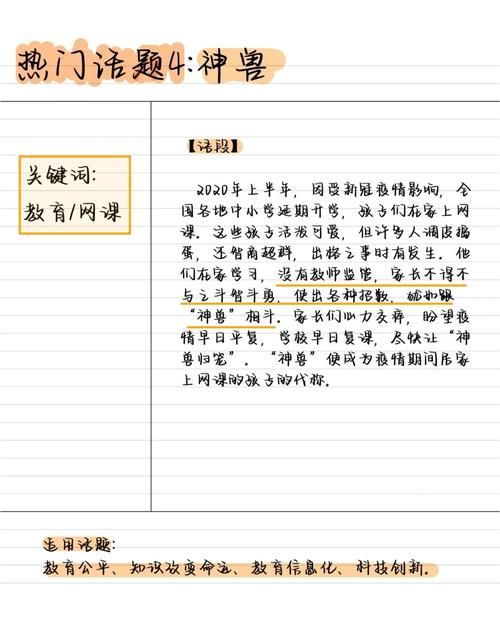 热门话题4:神兽
关键词:
教育/网课
【话段】
2020年上半年，因受新冠疫情影响，全
国各地中小学延期开学，孩子们在家上网
课。这些孩子活泼可爱，但许多人调皮捣
蛋，还智商超群，出格之事时有发生。他
们在家学习，没有教师监管，家长不得不
与之斗智斗勇，使出各种招数，犹如跟
“神兽”相斗。家长们心力交瘁，盼望疫
情早日平复，学校早日复课，尽快让“神
兽归笼”。“神兽”便成为疫情期间居家
上网课的孩子的代称。
适用话题:
教育公平、知识改变命运、教育信息化、科技创新.